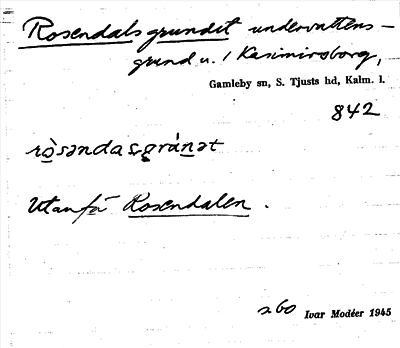 Rosendalsgrundet undervattens-
grund u. / Kasimirsborg,
Gamleby sn, S. Tjusts hd, Kalm. l.
842
ròsəndasgrúnət
Utanför Rosendalen.
260 Ivar Modéer 1945